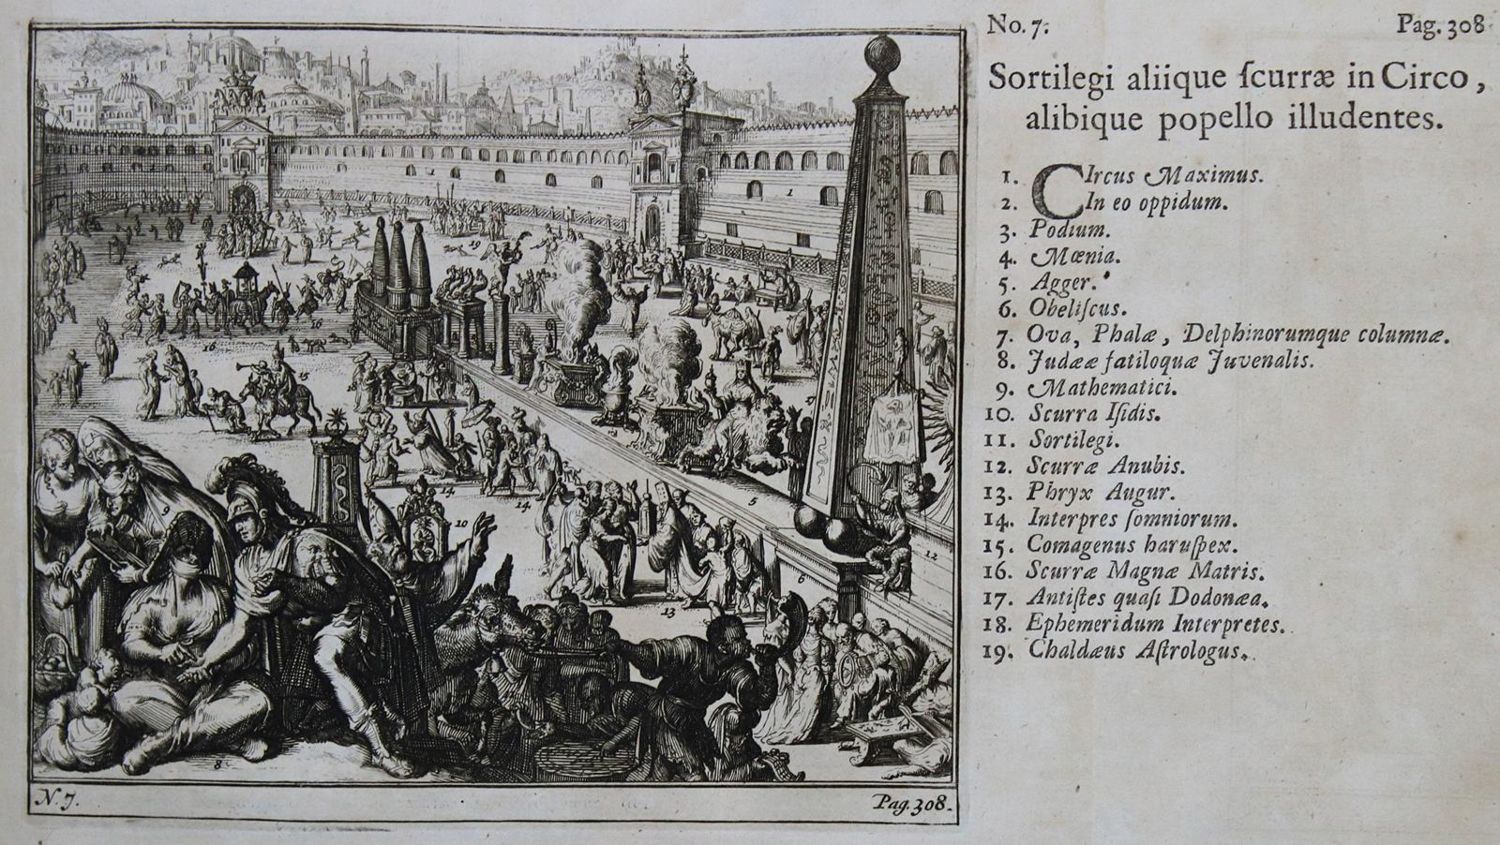 No. 7. Pag. 308
Sortilegi aliique ſcurræ in Circo,
alibique popello illudentes.
1. CIrcus Maximus.
2. In eo oppidum.
3. Podium.
4. Mœnia.
5. Agger.
6. Obeliſcus.
7. Ova, Phalæ, Delphinorumque columnæ.
8. Judææ fatiloquæ Juvenalis.
9. Mathematici.
10. Scurra Iſidis.
11. Sortilegi.
12. Scurræ Anubis.
13. Phryx Augur.
14. Interpres ſomniorum.
15. Comagenus haruſpex.
16. Scurræ Magnæ Matris.
17. Antiſtes quaſi Dodonæa.
18. Ephemeridum Interpretes.
19. Chaldæus Aſtrologus.
1
1
19
16
16
15
9
14
14
10
5
12
6
13
8
N. 7. Pag. 308.